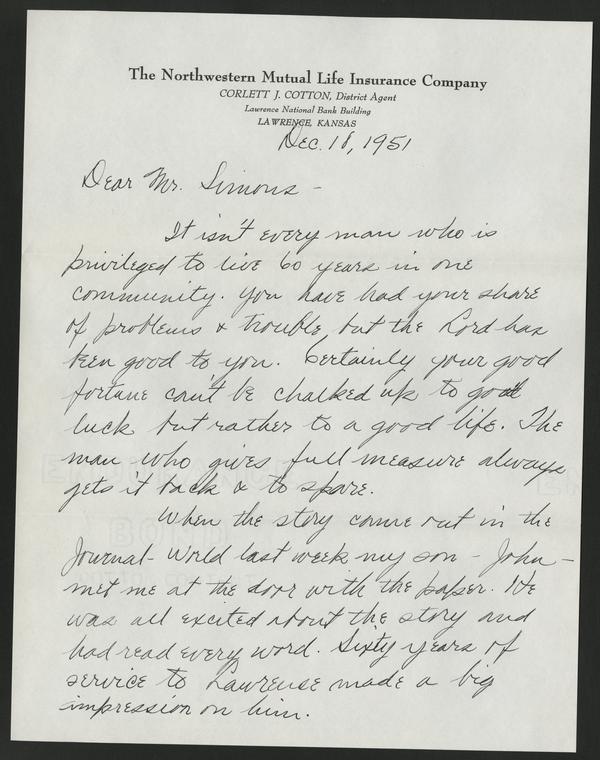 The Northwestern Mutual Life Insurance Company
CORLETT J. COTTON, District Agent
Lawrence National Bank Building
LAWRENCE, KANSAS
Dec. 18, 1951
Dear Mr. Simons -
It isn't every man who is
privileged to live 60 years in one
community. You have had your share
of problems & trouble, but the Lord has
been good to you. Certainly your good
fortune can't be chalked up to good
luck but rather to a good life. The
man who gives full measure always
gets it back & to spare.
When the story came out in the
Journal-World last week my son - John -
met me at the door with the paper. He
was all excited about the story and
had read every word. Sixty years of
service to Lawrense made a big
impression on him.
BOND